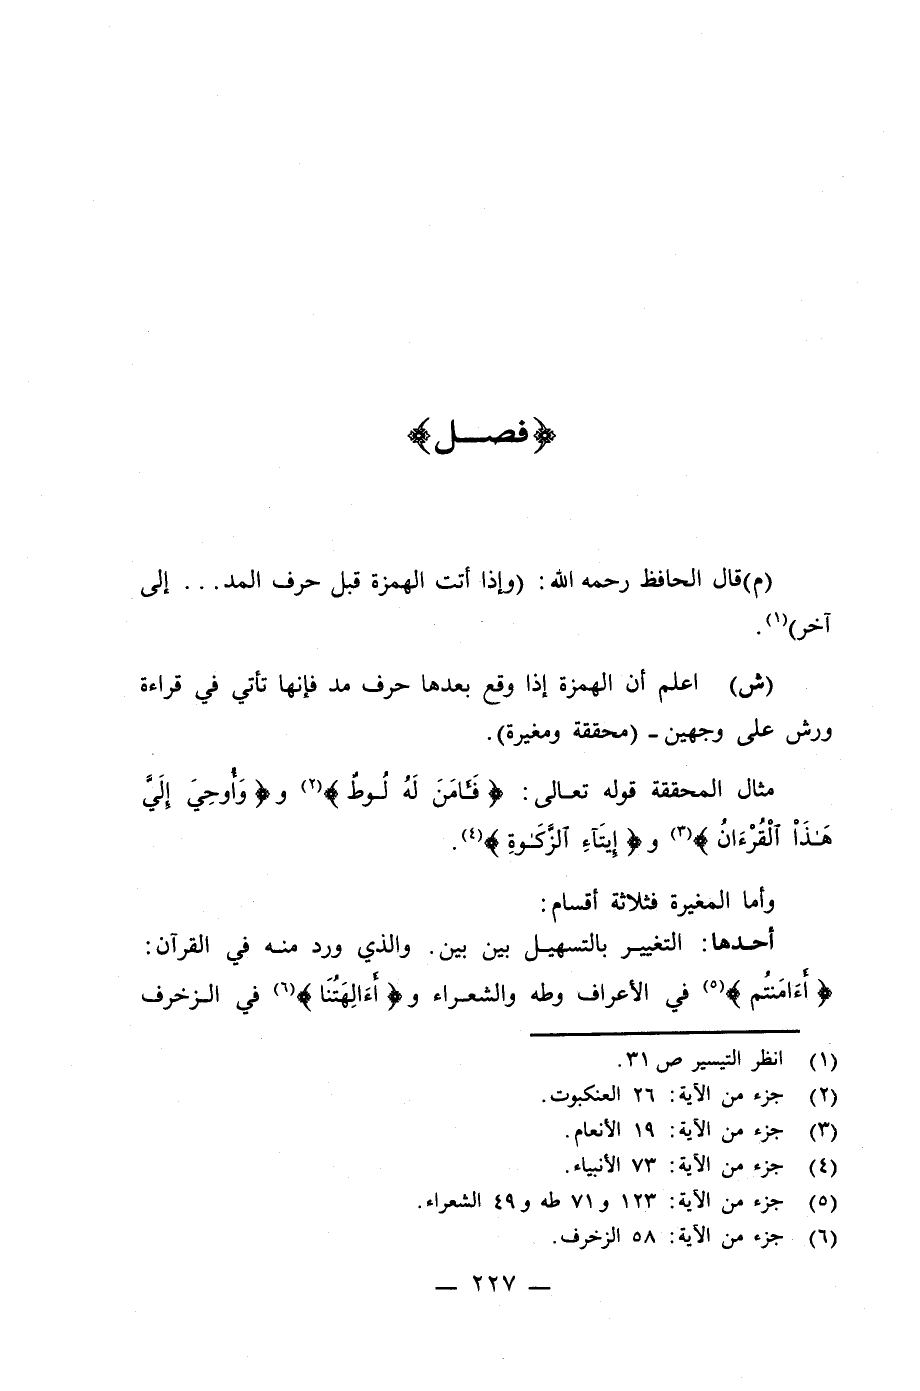 ﴿فصـــل﴾
(م)قال الحافظ رحمه الله: (وإذا أتت الهمزة قبل حرف المد... إلى
آخر)(١).
(ش) اعلم أن الهمزة إذا وقع بعدها حرف مد فإنها تأتي في قراءة
ورش على وجهين ـ (محققة ومغيرة).
مثال المحققة قوله تعـالى: ﴿ فَـَٔامَنَ لَهُ لُـوطٌ ﴾(٢) و ﴿ وَأُوحِيَ إِلَيَّ
هَـٰذَاْ ٱلْقُرْءَانُ ﴾(٣) و ﴿ إِيتَآءِ ٱلزَّكَـٰوةِ ﴾(٤).
وأما المغيرة فثلاثة أقسام:
أحـدها: التغييـر بالتسهيـل بين بين. والذي ورد منـه في القرآن:
﴿ أَءَامَنتُم ﴾(٥) في الأعراف وطه والشعـراء و﴿ أَءَالِهَتُنَا ﴾(٦) في الـزخرف
(١) انظر التيسير ص ٣١.
(٢) جزء من الآية: ٢٦ العنكبوت.
(٣) جزء من الآية: ١٩ الأنعام.
(٤) جزء من الآية: ٧٣ الأنبياء.
(٥) جزء من الآية: ١٢٣ و ٧١ طه و ٤٩ الشعراء.
(٦) جزء من الآية: ٥٨ الزخرف.
— ٢٢٧ —